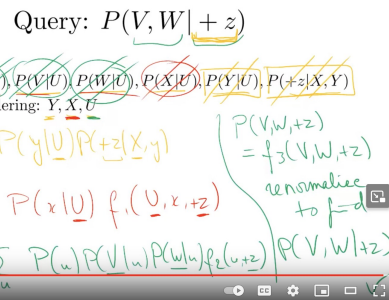 Query: P(V, W| + z)
), P(V|U), P(W|U), P(X|U), P(Y|U), P(+z|X, Y)
ering: Y, X, U
P(y|U)P(+z|X,y)
P(x|U) f₁(U,x,+z)
P(u)P(V|u)P(W|u)f₂(u,+z)
u
P(V,W,+z)
= f₃(V,W,+z)
renormalize
to
P(V,W|+z)